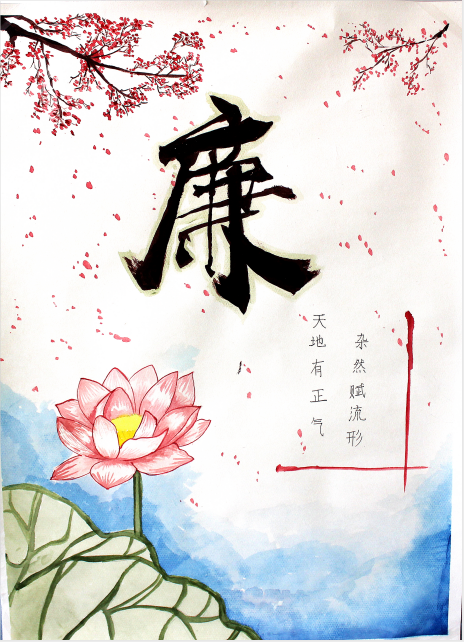 廉
天地有正气
杂然赋流形